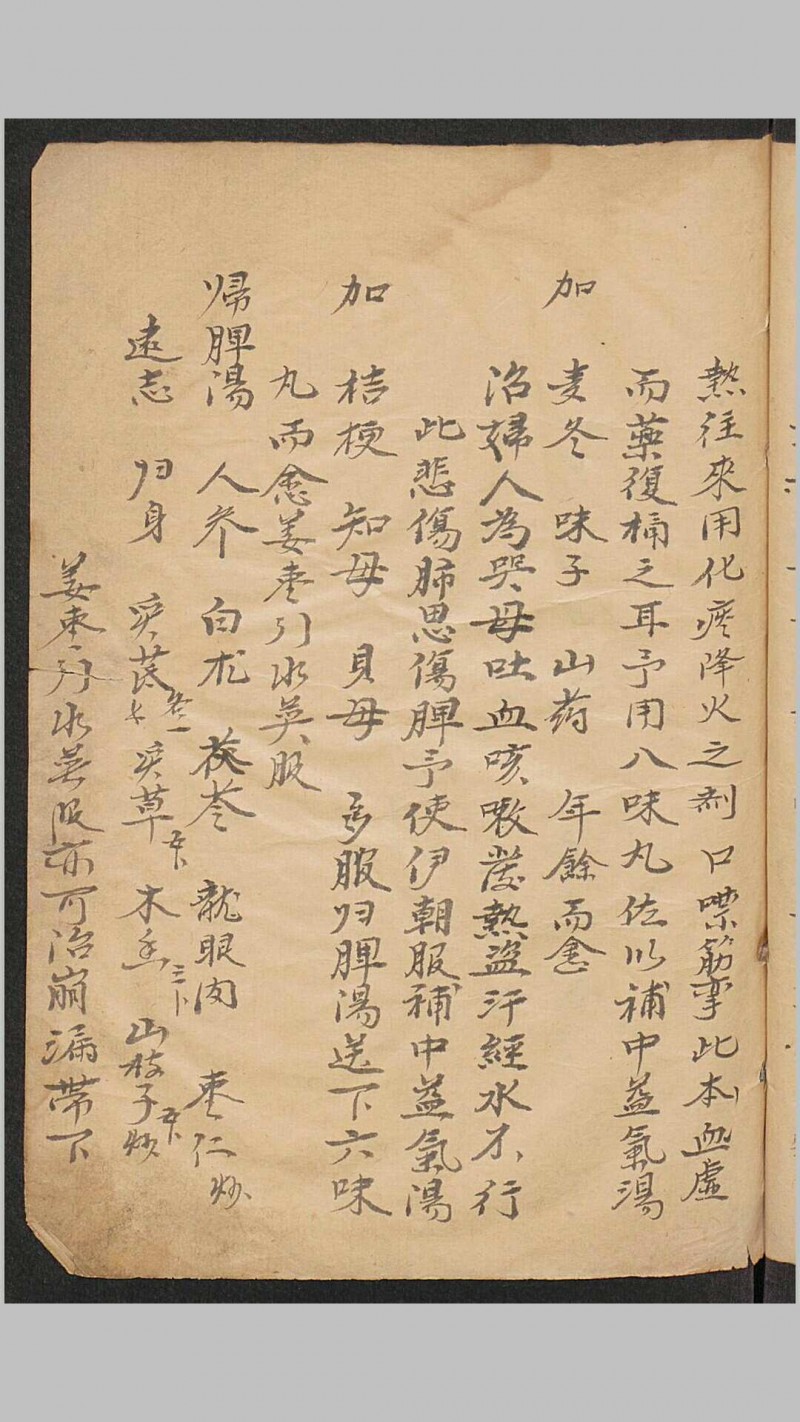 熱往來用化痰降火之劑口噤筋攣此本血虛
而藥復損之耳予用八味丸佐以補中益氣湯
加 麦冬 味子 山药 年餘而愈
治婦人為哭母吐血咳嗽發熱盜汗經水不行
此悲傷肺思傷脾予使伊朝服補中益氣湯
加 桔梗 知母 貝母 服归脾湯送下六味
丸而愈姜枣引水煎服
帰脾湯 人参 白朮 茯苓 龍眼肉 枣仁炒
遠志 归身 炙芪 炙草 木香 山枝子炒
姜枣引水煎服亦可治崩漏帶下